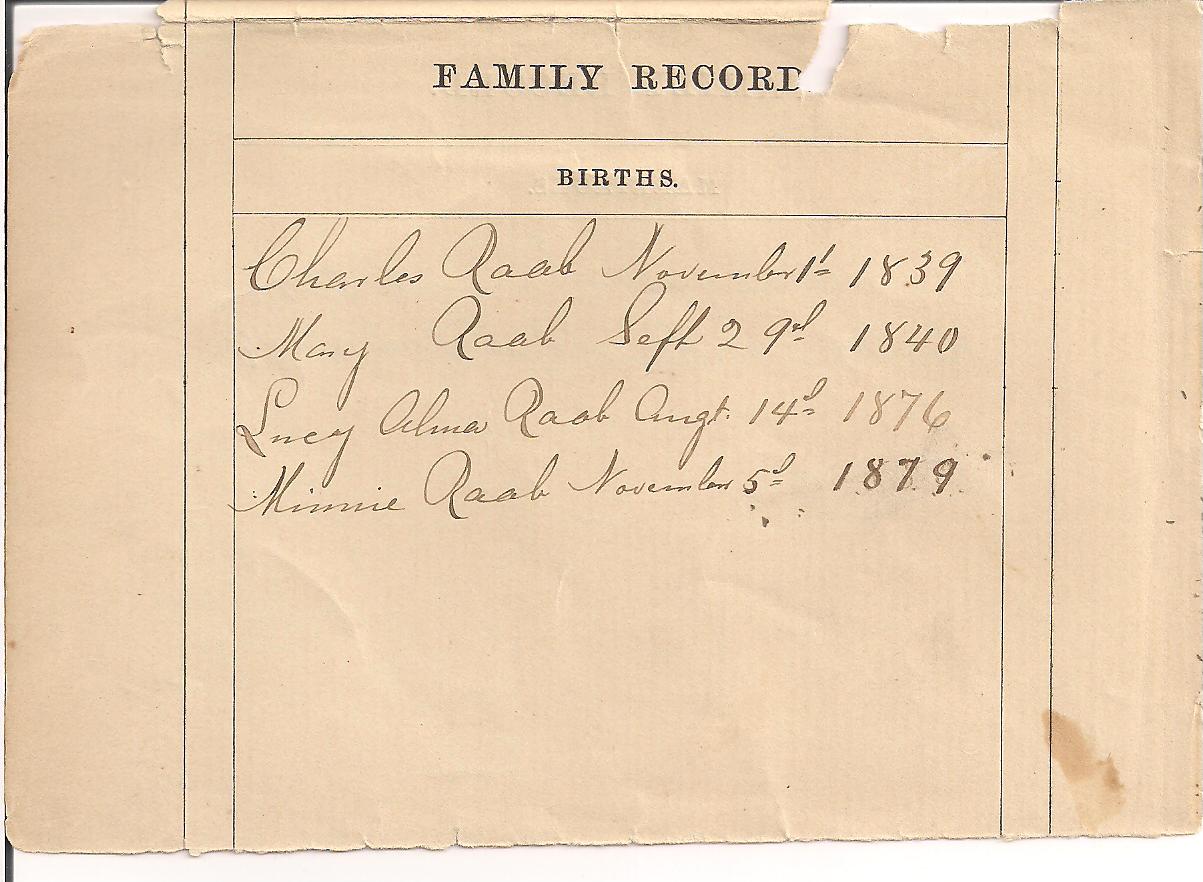 FAMILY RECORD
BIRTHS.
Charles Raab November 1' 1839
Mary Raab Sept 29d 1840
Lucy Alma Raab Augt. 14d 1876
Minnie Raab November 5d 1879